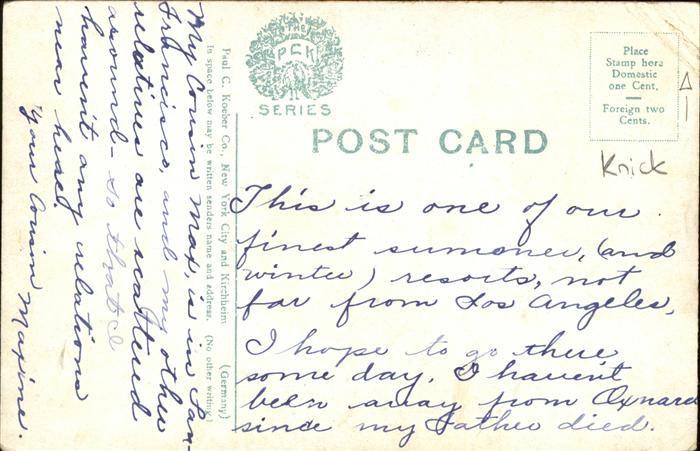 THE
P C K
SERIES
POST CARD
Place
Stamp here
Domestic
one Cent.
Foreign two
Cents.
Knick
Paul C. Koeber Co., New York City and Kirchheim (Germany)
In space below may be written senders name and address. (No other writing)
This is one of our
finest summer, (and
winter) resorts, not
far from Los Angeles,
I hope to go there
some day. I haven't
been away from Oxnard
since my Father died.
My Cousin Max, is in San-
Francisco, and my other
relatives are scattered
around - so that I
haven't any relations
near here.
Your Cousin Maxine.